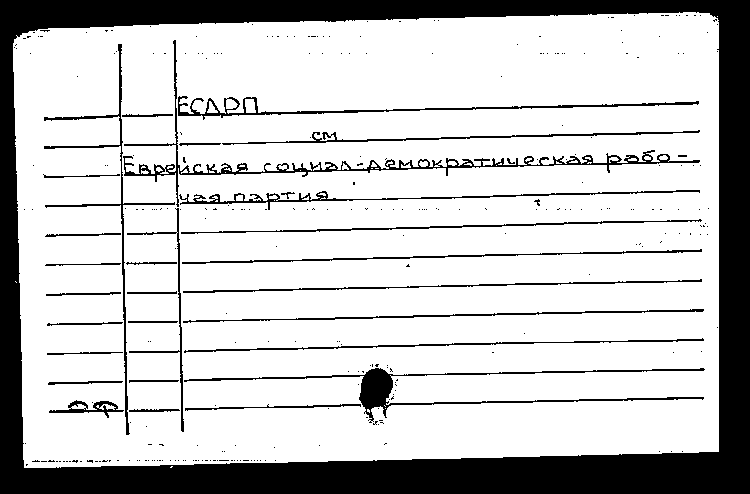 ЕСДРП
см
Еврейская социал-демократическая рабо-
чая партия.